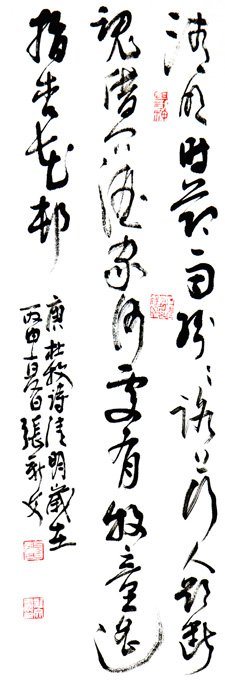 清明时节雨纷纷路上行人欲断
魂借问酒家何处有牧童遥
指杏花村
唐杜牧诗清明岁在
丙申夏日张新安